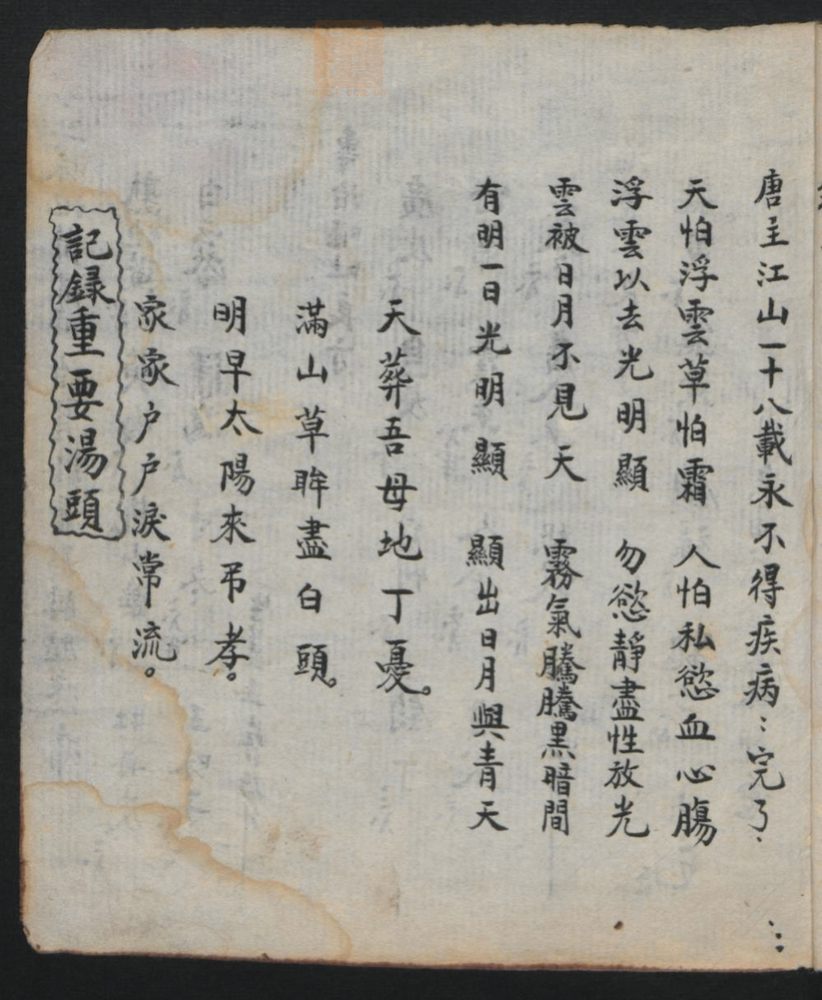 唐主江山一十八載永不得疾病：完了．
天怕浮雲草怕霜　人怕私慾血心膓
浮雲以去光明顯　勿慾靜盡性放光
雲被日月不見天　霧氣騰騰黑暗間
有明一日光明顯　顯出日月與青天
天葬吾母地丁憂。
滿山草眸盡白頭。
明早太陽來弔孝。
家家户户淚常流。
記録重要湯頭